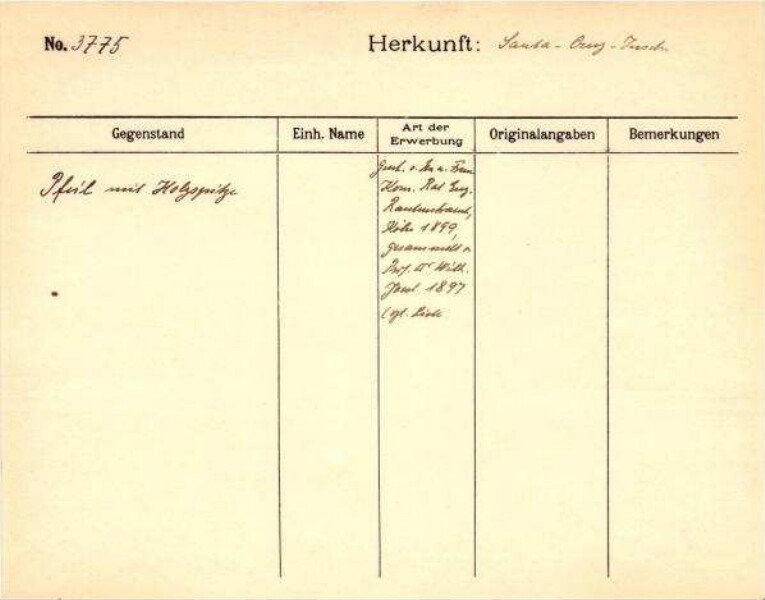 No. 3775
Herkunft: Santa-Cruz-Inseln
Gegenstand
Einh. Name
Art der
Erwerbung
Originalangaben
Bemerkungen
Pfeil mit Holzspitze
Gesch. v. Hr. u. Frau
Kom. Rat Eug.
Rautenstrauch,
Köln 1899,
gesammelt v.
Prof. Dr Wilh.
Joest 1897
(vgl. Liste